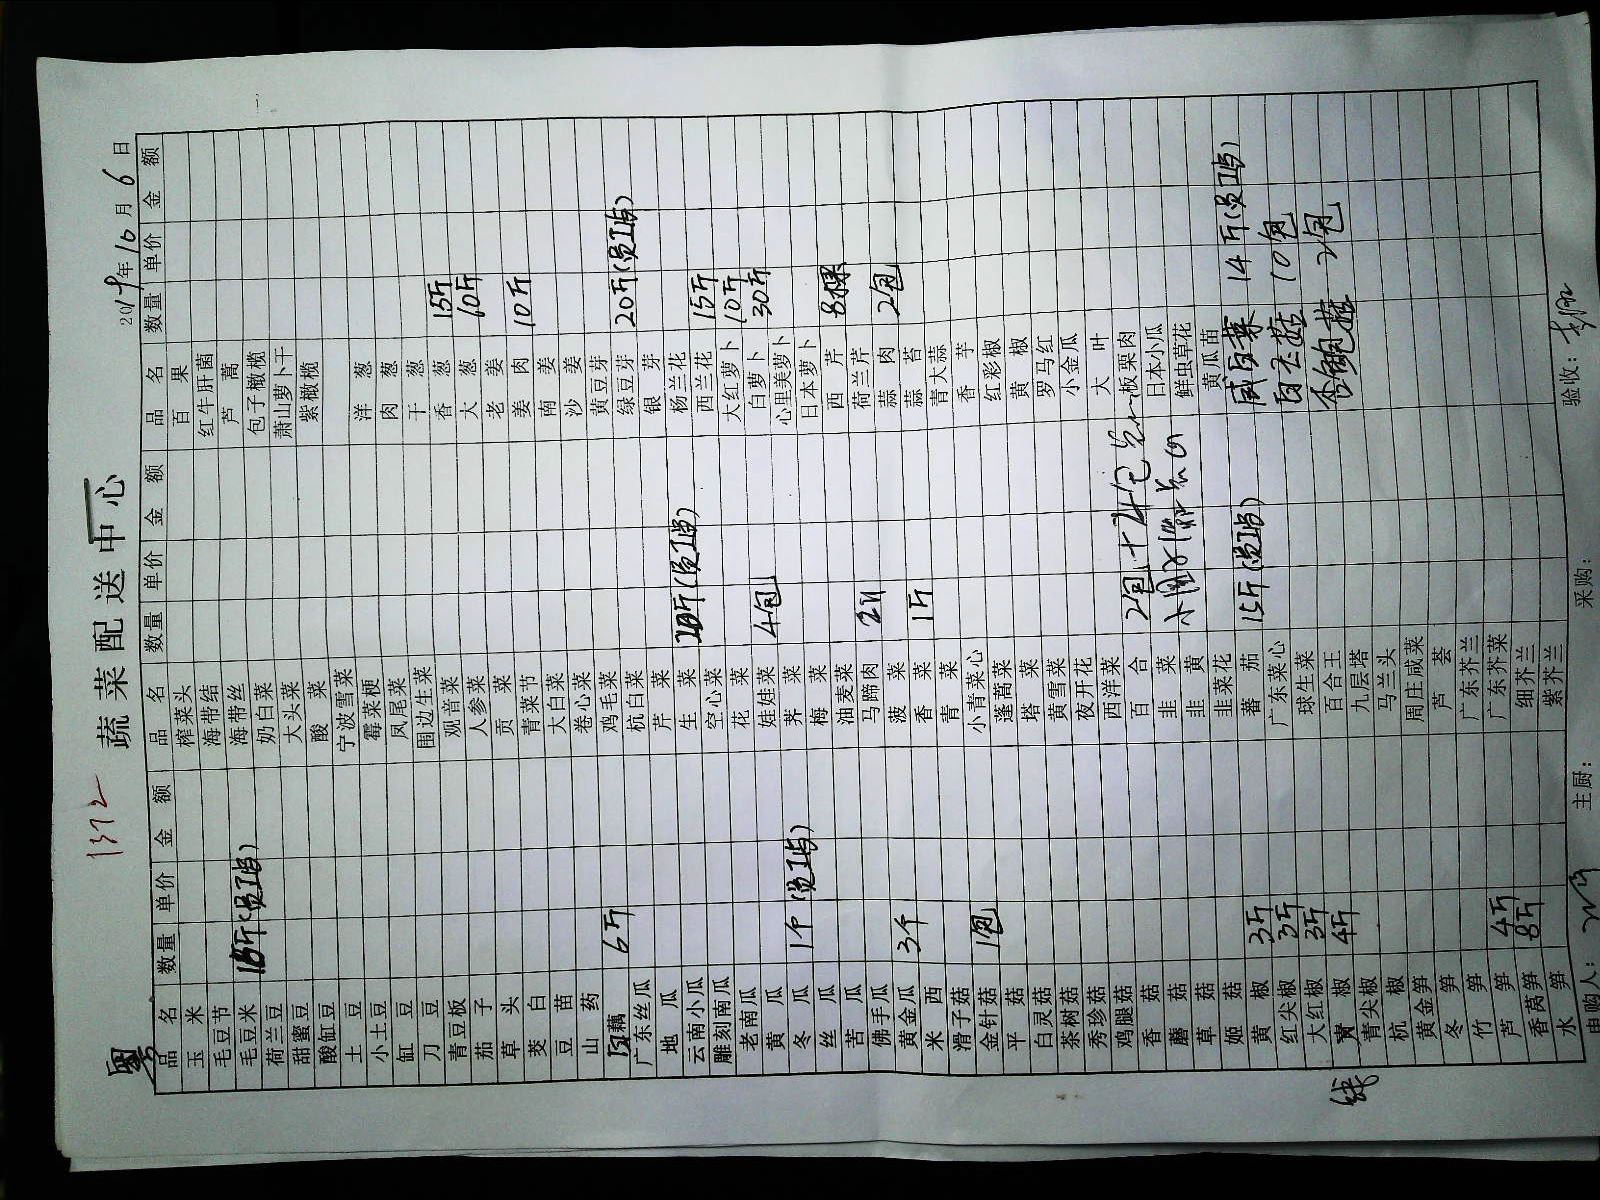 1372
蔬菜配送中心
粤
2019年10月6日
品名 数量 单价 金额 品名 数量 单价 金额 品名 数量 单价 金额
玉米 榨菜头 百果
毛豆节 海带结 红牛肝菌
毛豆米 斤(员工均) 海带丝 芦蒿
荷兰豆 奶白菜 包子橄榄
甜蜜豆 大头菜 萧山萝卜干
酸缸豆 酸菜 紫橄榄
土豆 宁波雪菜
小土豆 霉菜梗 洋葱
缸豆 凤尾菜 肉葱
刀豆 围边生菜 干葱
青豆板 观音菜 香葱 15斤
茄子 人参菜 大葱 10斤
草头 贡菜 老姜
茭白 青菜节 姜肉 10斤
豆苗 大白菜 南姜
山药 卷心菜 沙姜
藕 6斤 鸡毛菜 黄豆芽
广东丝瓜 杭白菜 绿豆芽 20斤(员工均)
地瓜 芹菜 银芽
云南小瓜 生菜 斤(员工均) 杨兰花
雕刻南瓜 空心菜 西兰花 15斤
老南瓜 花菜 大红萝卜 10斤
黄瓜 娃娃菜 4包 白萝卜 30斤
冬瓜 1个(员工均) 荠菜 心里美萝卜
丝瓜 梅菜 日本萝卜
苦瓜 油麦菜 西芹 8棵
佛手瓜 马蹄肉 荷兰芹
黄金瓜 3个 菠菜 蒜肉 2包
米西 香菜 1斤 蒜苔
滑子菇 青菜 青大蒜
金针菇 1包 小青菜心 香芋
平菇 蓬蒿菜 红彩椒
白灵菇 塔菜 黄椒
茶树菇 黄雪菜 罗马红
秀珍菇 夜开花 小金瓜
鸡腿菇 西洋菜 大叶
香菇 百合 2包+ 板栗肉
蘑菇 韭菜 日本小瓜
草菇 韭黄 鲜虫草花
姬菇 韭菜花 黄瓜苗
黄椒 3斤 蕃茄 15斤(员工均) 白菜 14斤(员工均)
红尖椒 3斤 广东菜心 白玉菇 10包
大红椒 3斤 球生菜
线 椒 4斤 百合王 杏鲍菇 2包
青尖椒 九层塔
杭椒 马兰头
黄金笋 周庄咸菜
冬笋 芦荟
竹笋 广东芥兰
芦笋 4斤 广东芥菜
香莴笋 8斤 细芥兰
水笋 紫芥兰
申购人: 主厨: 采购: 验收: